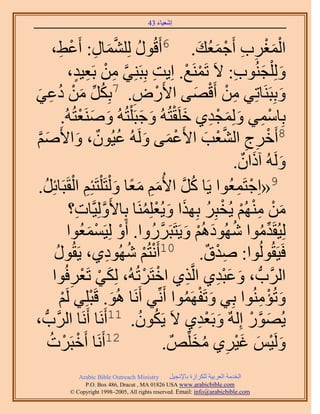 إشعياء 43
الْمَغْرِبِ أَجْمَعُكَ. 6أَقُولُ لِلشَّمَالِ: أَعْطِ،
وَلِلْجَنُوبِ: لاَ تَمْنَعْ. اِيتِ بِبَنِيَّ مِنْ بَعِيدٍ،
وَبِبَنَاتِي مِنْ أَقْصَى الأَرْضِ. 7بِكُلِّ مَنْ دُعِيَ
بِاسْمِي وَلِمَجْدِي خَلَقْتُهُ وَجَبَلْتُهُ وَصَنَعْتُهُ.
8أَخْرِجِ الشَّعْبَ الأَعْمَى وَلَهُ عُيُونٌ، وَالأَصَمَّ
وَلَهُ آذَانٌ.
9«اِجْتَمِعُوا يَا كُلَّ الأُمَمِ مَعًا وَلْتَلْتَئِمِ الْقَبَائِلُ.
مَنْ مِنْهُمْ يُخْبِرُ بِهذَا وَيُعْلِمُنَا بِالأَوَّلِيَّاتِ؟
لِيُقَدِّمُوا شُهُودَهُمْ وَيَتَبَرَّرُوا. أَوْ لِيَسْمَعُوا
فَيَقُولُوا: صِدْقٌ. 10أَنْتُمْ شُهُودِي، يَقُولُ
الرَّبُّ، وَعَبْدِي الَّذِي اخْتَرْتُهُ، لِكَيْ تَعْرِفُوا
وَتُؤْمِنُوا بِي وَتَفْهَمُوا أَنِّي أَنَا هُوَ. قَبْلِي لَمْ
يُصَوَّرْ إِلهٌ وَبَعْدِي لاَ يَكُونُ. 11أَنَا أَنَا الرَّبُّ،
وَلَيْسَ غَيْرِي مُخَلِّصٌ. 12أَنَا أَخْبَرْتُ
Arabic Bible Outreach Ministry الخدمة العربية للكرازة بالإنجيل
P.O. Box 486, Dracut , MA 01826 USA www.arabicbible.com
© Copyright 1998-2005, All rights reserved. Email: info@arabicbible.com